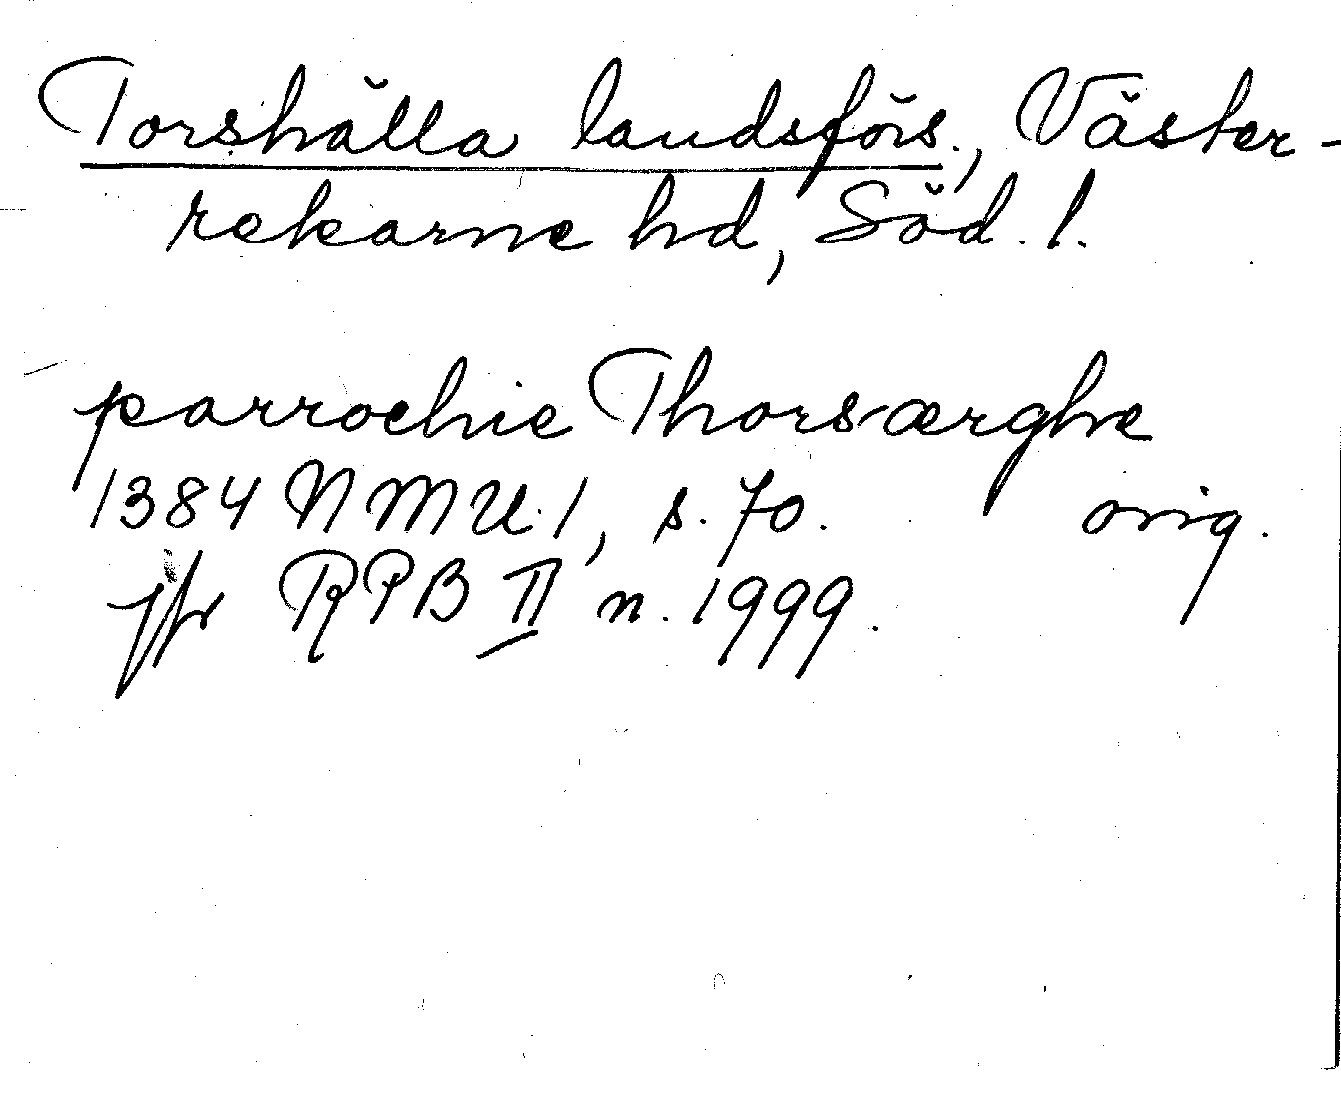 Torshälla landsförs., Väster-
rekarne hd, Söd. l.
parrochie Thorsærghe
1384 NMU 1, s. 70. orig.
jfr RPB II n. 1999.